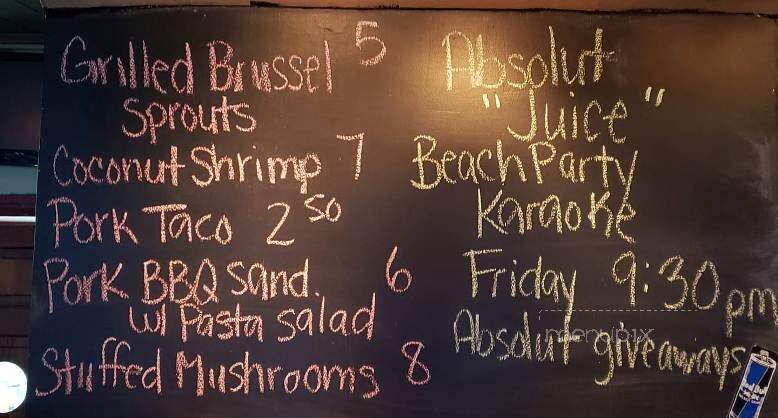 Grilled Brussel 5
Sprouts
Coconut Shrimp 7
Pork Taco 2 50
Pork BBQ Sand. 6
w/ Pasta salad
Stuffed Mushrooms 8
Absolut
"Juice"
Beach Party
Karaoke
Friday 9:30pm
Absolut giveaways
menupix
Red Bull